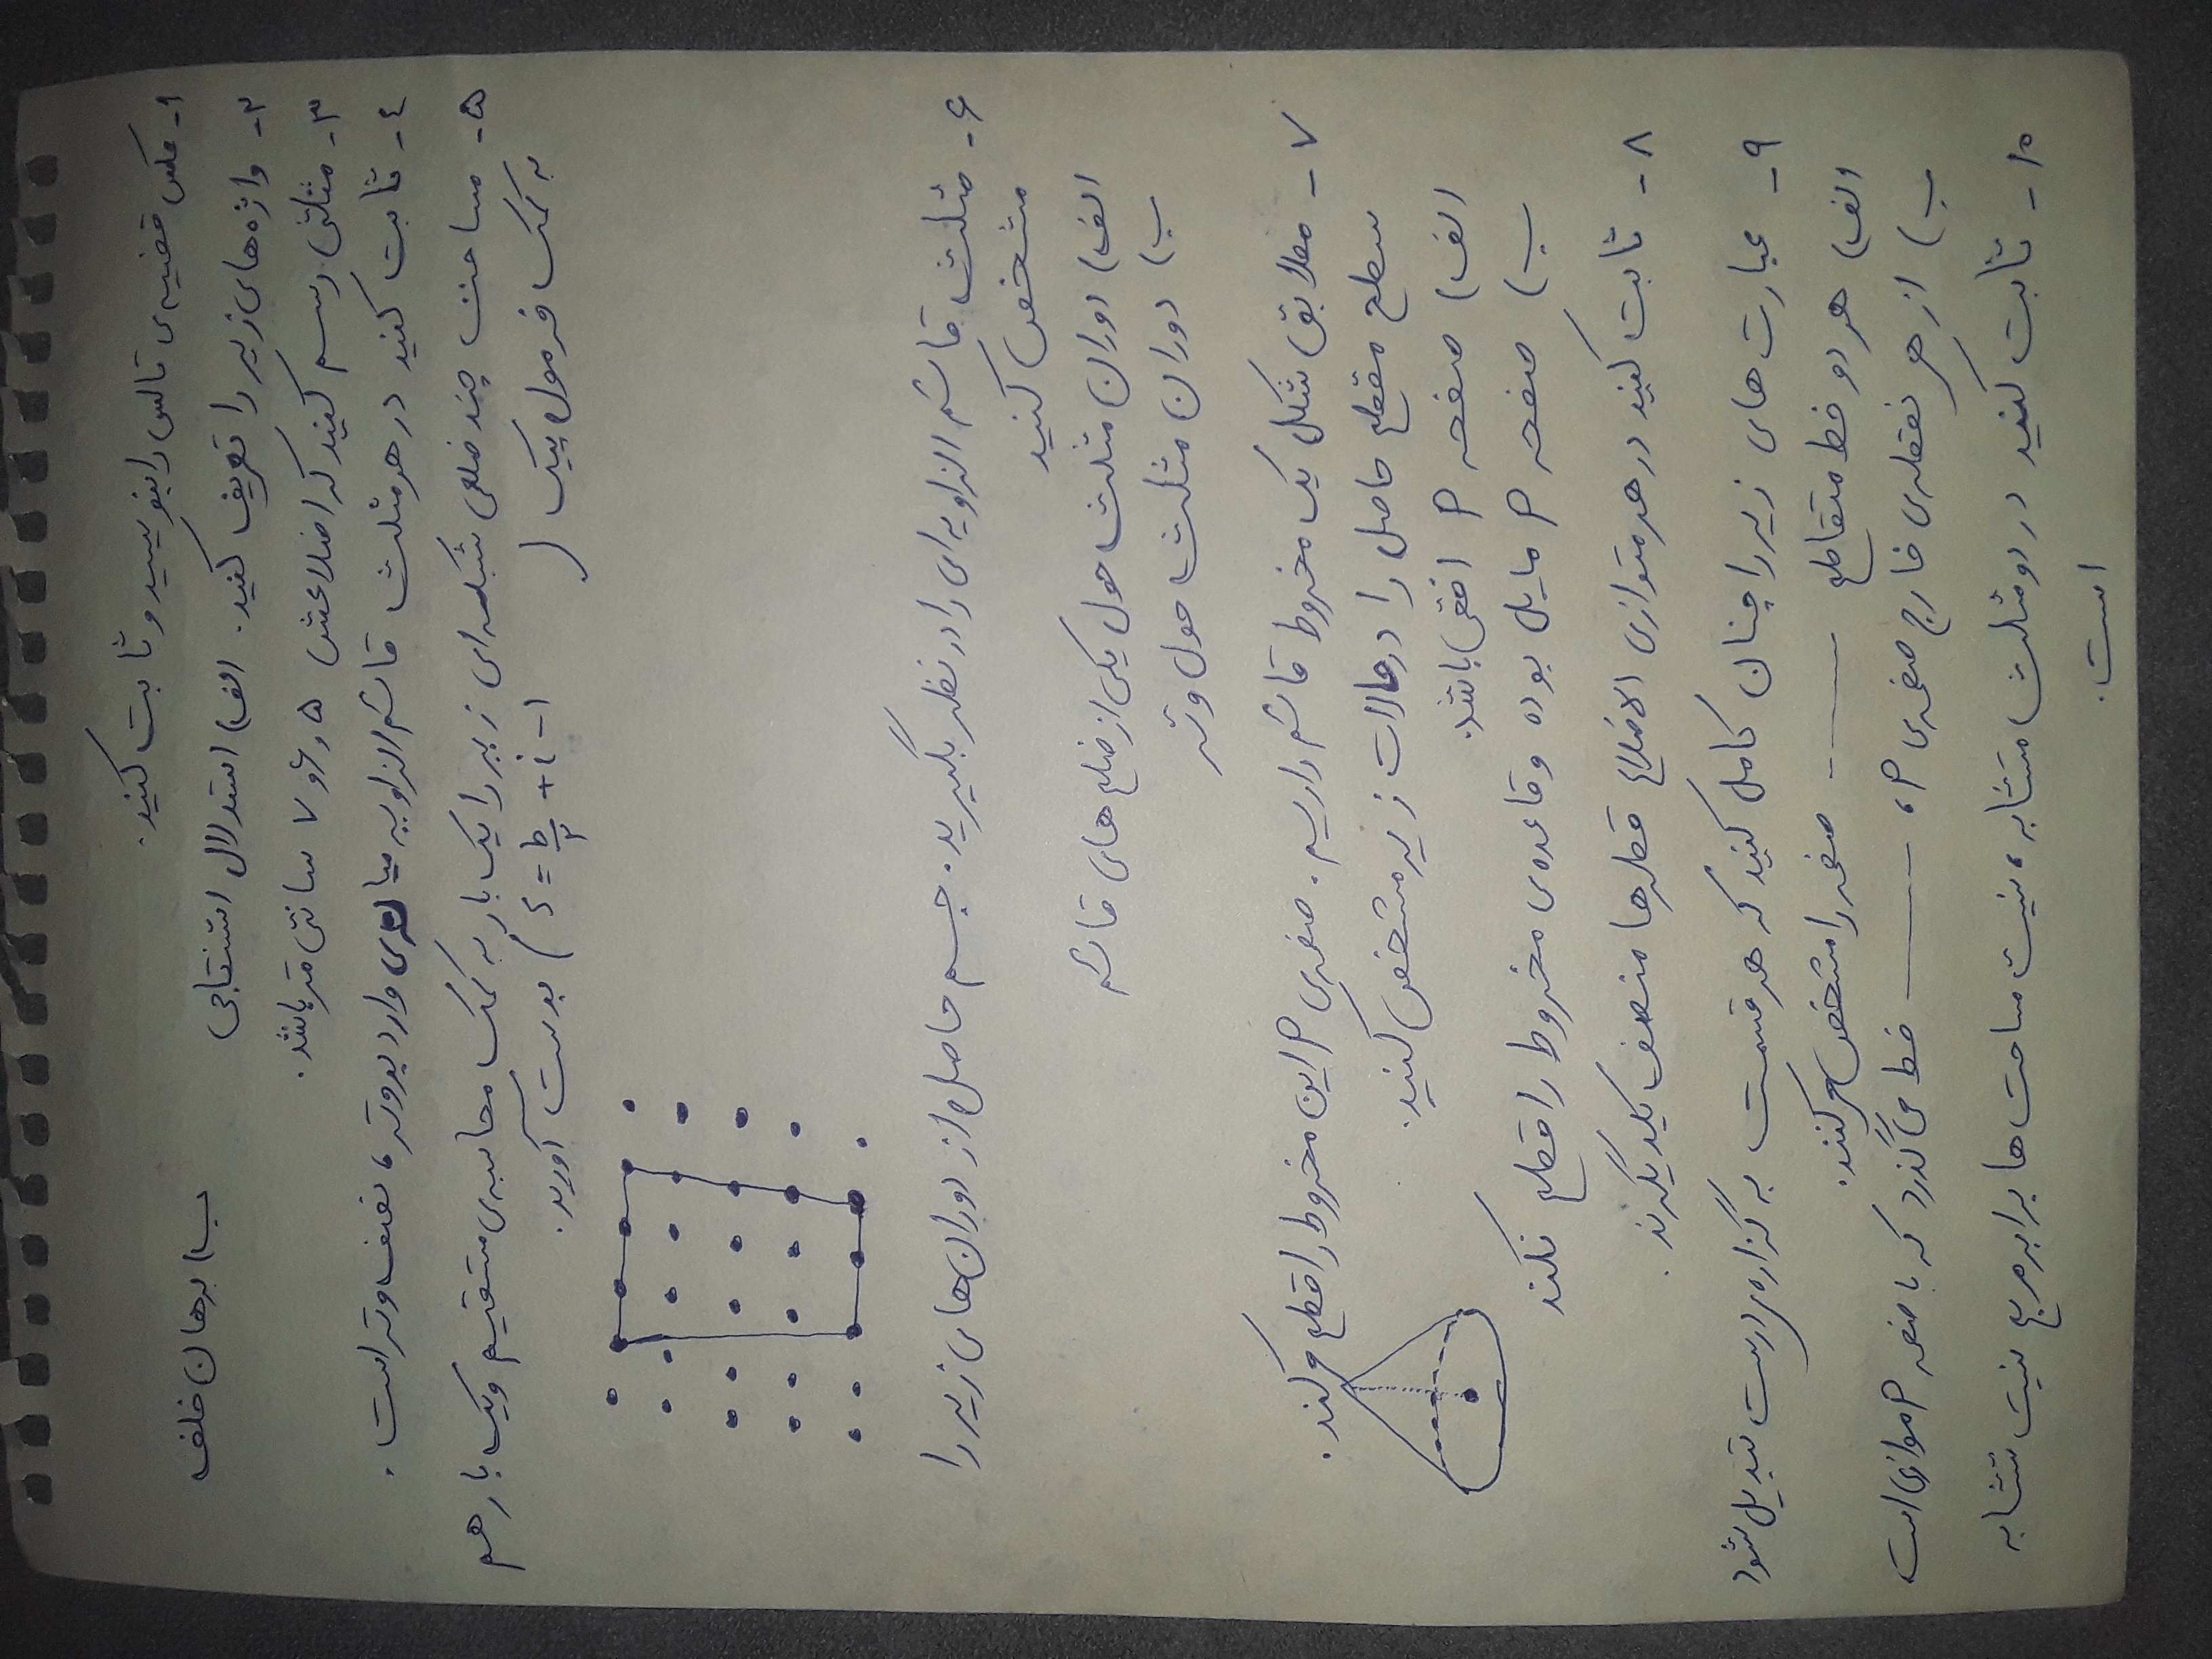 ۱- عکس قضیه‌ی تالس را بنویسید و ثابت کنید.
۲- واژه‌های زیر را تعریف کنید. الف) استدلال استنتاجی ب) برهان خلف
۳- مثلثی رسم کنید که اضلاعش ۵ و ۶ و ۷ سانتی متر باشد.
۴- ثابت کنید در هر مثلث قائم الزاویه میانه‌ی وارد بر وتر، نصف وتر است.
۵- مساحت چند ضلعی شبکه‌ای زیر را یک بار به کمک محاسبه‌ی مستقیم و یک بار هم
به کمک فرمول پیک ( S = b/۲ + i - ۱ ) بدست آورید.
۶- مثلث قائم الزاویه‌ای را در نظر بگیرید. جسم حاصل از دوران‌های زیر را
مشخص کنید
الف) دوران مثلث حول یکی از ضلع های قائم
ب) دوران مثلث حول وتر
۷- مطابق شکل یک مخروط قائم داریم. صفحه‌ی P این مخروط را قطع می‌کند.
سطح مقطع حاصل را در حالات زیر مشخص کنید.
الف) صفحه P افقی باشد.
ب) صفحه P مایل بوده و قاعده‌ی مخروط را قطع نکند
۸- ثابت کنید در هر متوازی الاضلاع قطرها منصف یکدیگرند.
۹- عبارت های زیر را چنان کامل کنید که هر قسمت به گزاره‌ی درست تبدیل شود
الف) هر دو خط متقاطع ------ صفحه را مشخص می‌کنند.
ب) از هر نقطه‌ی خارج صفحه‌ی P، ------ خط می‌گذرد که با صفحه P موازی است
۱۰- ثابت کنید در دو مثلث متشابه، نسبت مساحت ها برابر مربع نسبت تشابه
است.